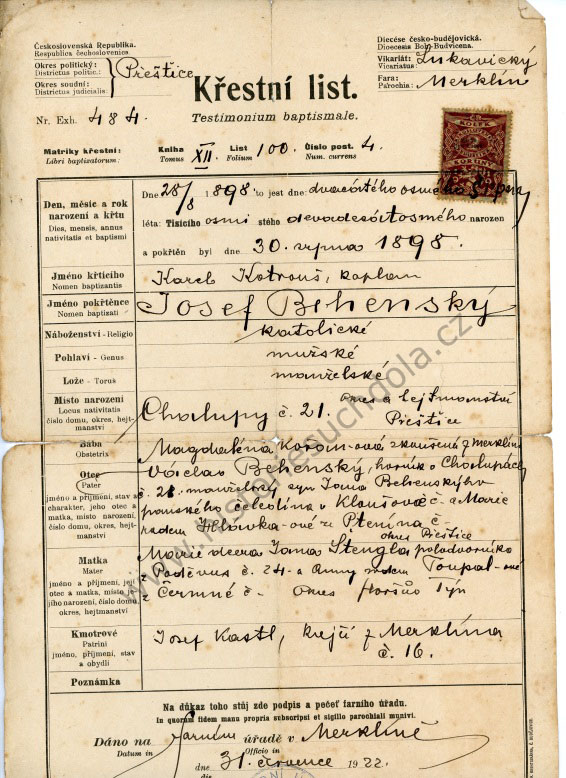 Československá Republika.
Respublica čechoslovenica.
Okres politický:
Districtus politic.:
Okres soudní:
Districtus judicialis:
Přeštice
Nr. Exh. 484.
Křestní list.
Testimonium baptismale.
Diecése česko-budějovická.
Dioecesis Boh.-Budvicena.
Vikariát: Lukavický
Vicariatus:
Fara: Merklín
Parochia:
Matriky křestní: Kniha XII. List 100, Číslo post. 4.
Libri baptizatorum: Tomus Folium Num. currens
KOLEK
2
Den, měsíc a rok
narození a křtu
Dies, mensis, annus
nativitatis et baptismi
Dne 28/8 1898 to jest dne: dvacátého osmého srpna
léta: Tisícího osmi stého devadesátosmého narozen
a pokřtěn byl dne 30. srpna 1898.
Jméno křtícího
Nomen baptizantis
Karel Kotrouš, kaplan
Jméno pokřtěnce
Nomen baptisati
Josef Behenský
Náboženství - Religio katolické
Pohlaví - Genus mužské
Lože - Torus manželské
Místo narození
Locus nativitatis
číslo domu, okres, hejtmanství
Chalupy č. 21. okres a hejtmanství
Přeštice
Bába
Obstetrix
Magdaléna zkoušená z Merklína
Otec
Pater
jméno a příjmení, stav a
charakter, jeho otec a
matka, místo narození,
číslo domu, okres, hejtmanství
Václav Behenský, horník v Chalupách
č. 21. manželský syn Jana Behenského
panského v č. a Marie
rodem z Ptenína č.
okres Přeštice
Matka
Mater
jméno a příjmení, její
otec a matka, místo
jího narození, číslo domu,
okres, hejtmanství
Marie dcera Jana Stengla
č. 24. a Anny rodem Toupal-ové
z Čermné č. okres Horšův Týn
Kmotrové
Patrini
jméno, příjmení, stav
a obydlí
Josef Kastl, krejčí z Merklína
č. 16.
Poznámka
Na důkaz toho stůj zde podpis a pečeť farního úřadu.
In quorum fidem manu propria subscripsi et sigillo parochiali munivi.
Dáno na farním úřadě v Merklíně
Datum in Officio in
dne 31. července 1922.
die
www.historiesuchdola.cz